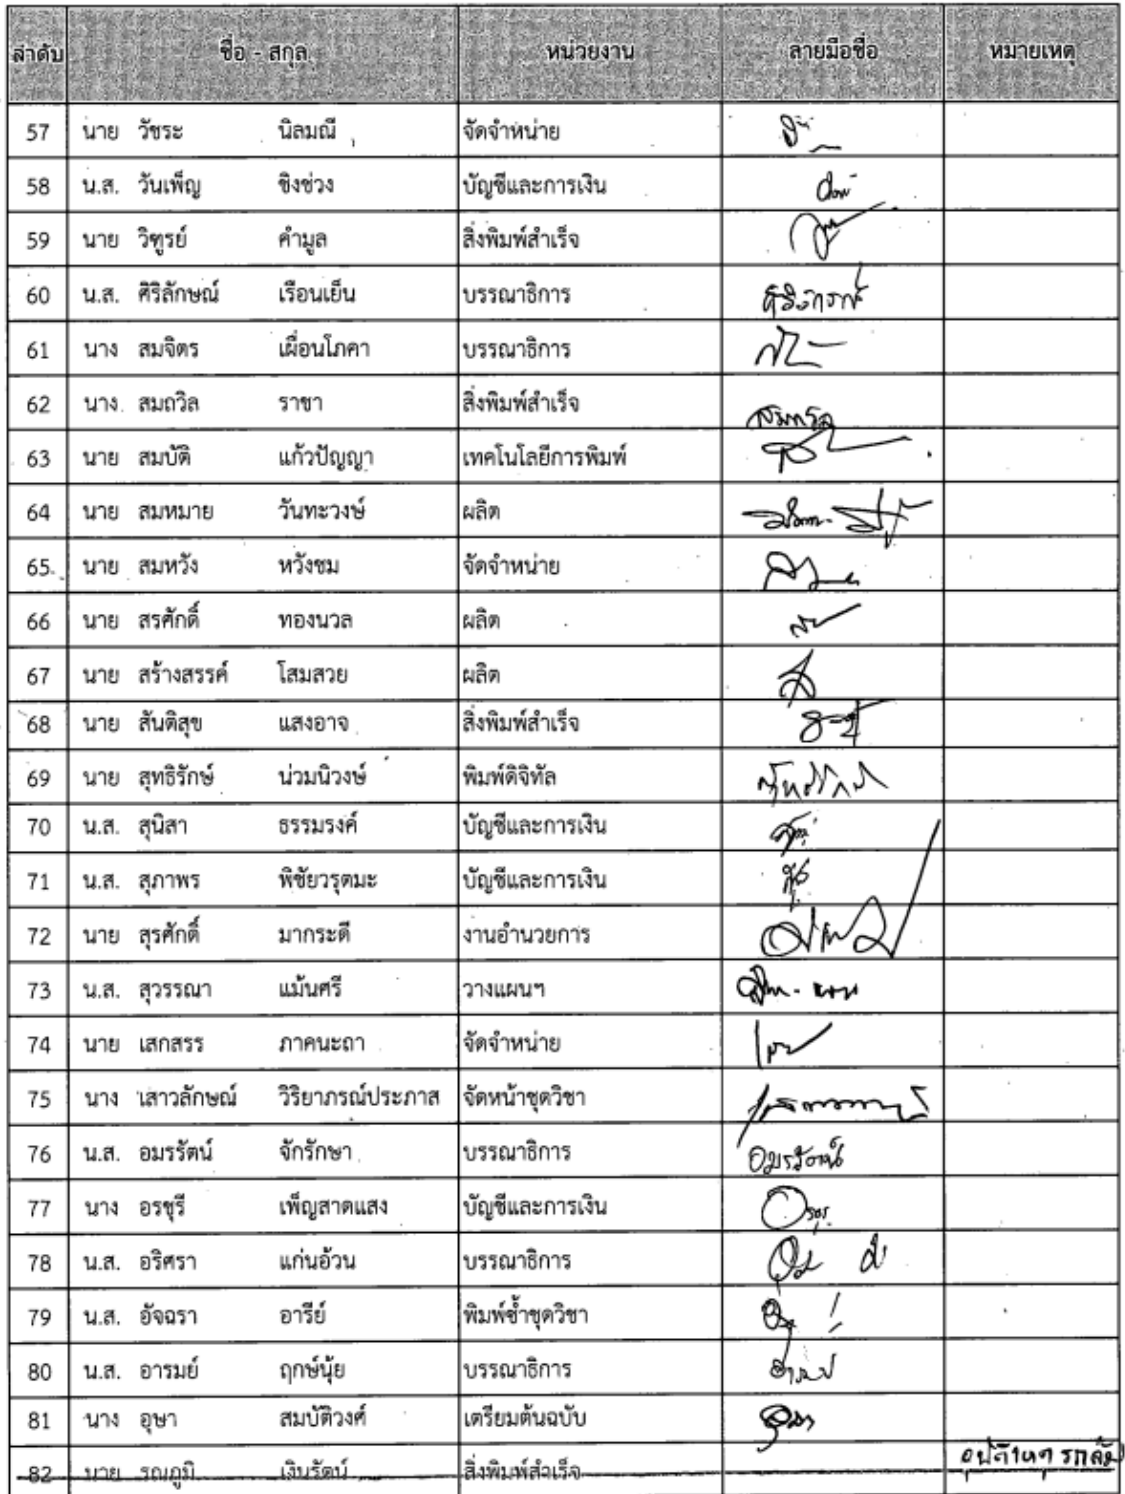 ลำดับ ชื่อ - สกุล หน่วยงาน ลายมือชื่อ หมายเหตุ
57 นาย วัชระ นิลมณี จัดจำหน่าย
58 น.ส. วันเพ็ญ ชิงช่วง บัญชีและการเงิน
59 นาย วิฑูรย์ คำมูล สิ่งพิมพ์สำเร็จ
60 น.ส. ศิริลักษณ์ เรือนเย็น บรรณาธิการ
61 นาง สมจิตร เผื่อนโภคา บรรณาธิการ
62 นาง สมถวิล ราชา สิ่งพิมพ์สำเร็จ สมถวิล
63 นาย สมบัติ แก้วปัญญา เทคโนโลยีการพิมพ์
64 นาย สมหมาย วันทะวงษ์ ผลิต
65 นาย สมหวัง หวังชม จัดจำหน่าย
66 นาย สรศักดิ์ ทองนวล ผลิต
67 นาย สร้างสรรค์ โสมสวย ผลิต
68 นาย สันติสุข แสงอาจ สิ่งพิมพ์สำเร็จ
69 นาย สุทธิรักษ์ น่วมนิวงษ์ พิมพ์ดิจิทัล
70 น.ส. สุนิสา ธรรมรงค์ บัญชีและการเงิน
71 น.ส. สุภาพร พิชัยวรุตมะ บัญชีและการเงิน
72 นาย สุรศักดิ์ มากระดี งานอำนวยการ
73 น.ส. สุวรรณา แม้นศรี วางแผนฯ
74 นาย เสกสรร ภาคนะถา จัดจำหน่าย
75 นาง เสาวลักษณ์ วิริยาภรณ์ประภาส จัดหน้าชุดวิชา
76 น.ส. อมรรัตน์ จักรักษา บรรณาธิการ อมรรัตน์
77 นาง อรชุรี เพ็ญสาดแสง บัญชีและการเงิน
78 น.ส. อริศรา แก่นอ้วน บรรณาธิการ
79 น.ส. อัจฉรา อารีย์ พิมพ์ซ้ำชุดวิชา
80 น.ส. อารมย์ ฤกษ์นุ้ย บรรณาธิการ
81 นาง อุษา สมบัติวงศ์ เตรียมต้นฉบับ
82 นาย รณภูมิ เงินรัตน์ สิ่งพิมพ์สำเร็จ อุบัติเหตุ รถล้ม